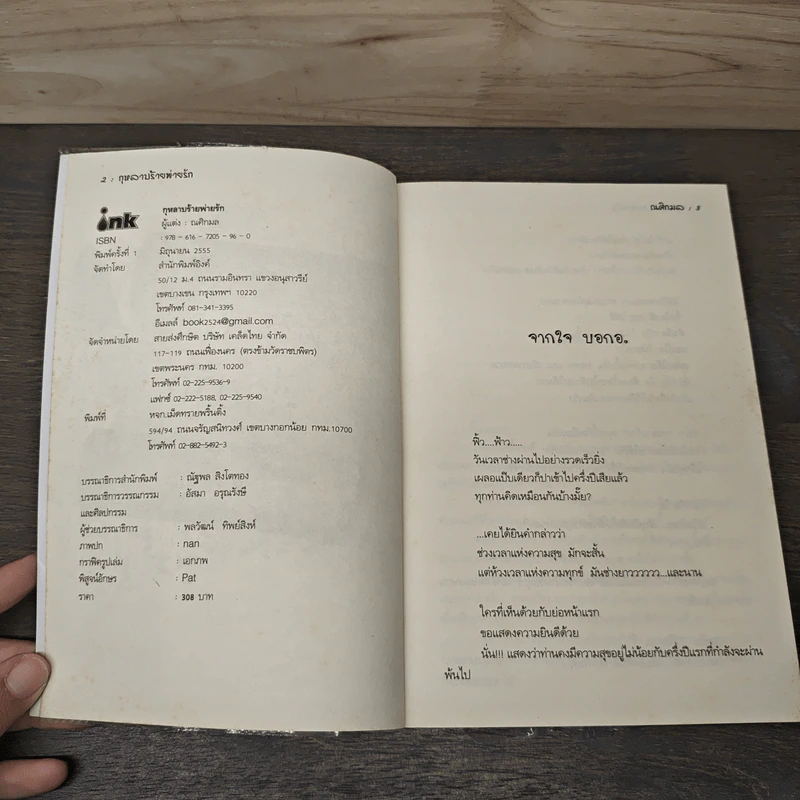 2 : กุหลาบร้ายพ่ายรัก
ink
กุหลาบร้ายพ่ายรัก
ผู้แต่ง : ณศิกมล
ISBN : 978 - 616 - 7205 - 96 - 0
พิมพ์ครั้งที่ 1 มิถุนายน 2555
จัดทำโดย สำนักพิมพ์อิงค์
50/12 ม.4 ถนนรามอินทรา แขวงอนุสาวรีย์
เขตบางเขน กรุงเทพฯ 10220
โทรศัพท์ 081-341-3395
อีเมลล์ book2524@gmail.com
จัดจำหน่ายโดย สายส่งศึกษิต บริษัท เคล็ดไทย จำกัด
117-119 ถนนเฟื่องนคร (ตรงข้ามวัดราชบพิตร)
เขตพระนคร กทม. 10200
โทรศัพท์ 02-225-9536-9
แฟกซ์ 02-222-5188, 02-225-9540
พิมพ์ที่ หจก.เม็ดทรายพริ้นติ้ง
594/94 ถนนจรัญสนิทวงศ์ เขตบางกอกน้อย กทม.10700
โทรศัพท์ 02-882-5492-3
บรรณาธิการสำนักพิมพ์ : ณัฐพล สิงโตทอง
บรรณาธิการวรรณกรรม : อัสมา อรุณรังษี
และศิลปกรรม
ผู้ช่วยบรรณาธิการ : พลวัฒน์ ทิพย์สิงห์
ภาพปก : nan
กราฟิครูปเล่ม : เอกภพ
พิสูจน์อักษร : Pat
ราคา : 308 บาท
ณศิกมล : 3
จากใจ บอกอ.
ฟิ้ว....ฟ้าว.....
วันเวลาช่างผ่านไปอย่างรวดเร็วยิ่ง
เผลอแป๊บเดียวก็ปาเข้าไปครึ่งปีเสียแล้ว
ทุกท่านคิดเหมือนกันบ้างมั๊ย?
...เคยได้ยินคำกล่าวว่า
ช่วงเวลาแห่งความสุข มักจะสั้น
แต่ห้วงเวลาแห่งความทุกข์ มันช่างยาวววววว...และนาน
ใครที่เห็นด้วยกับย่อหน้าแรก
ขอแสดงความยินดีด้วย
นั่น!!! แสดงว่าท่านคงมีความสุขอยู่ไม่น้อยกับครึ่งปีแรกที่กำลังจะผ่าน
พ้นไป